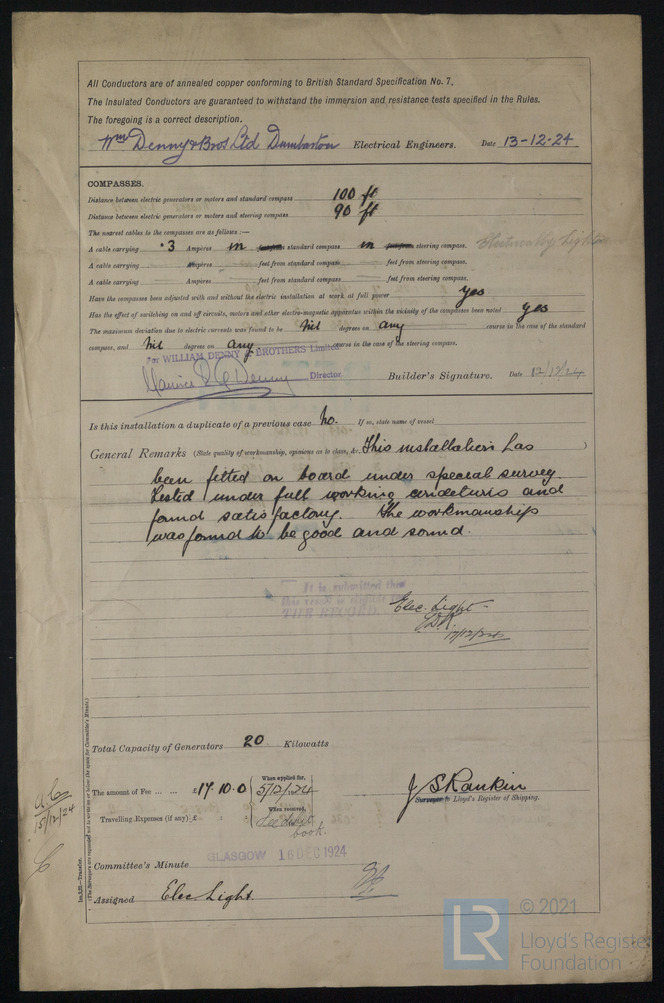 All Conductors are of annealed copper conforming to British Standard Specification No. 7.
The Insulated Conductors are guaranteed to withstand the immersion and resistance tests specified in the Rules.
The foregoing is a correct description.
Wm Denny & Bros Ltd Dumbarton Electrical Engineers. Date 13-12-24
COMPASSES.
Distance between electric generators or motors and standard compass 100 ft
Distance between electric generators or motors and steering compass 90 ft
The nearest cables to the compasses are as follows:—
A cable carrying ·3 Ampères in standard compass in steering compass. Electrically Light
A cable carrying — Ampères — feet from standard compass — feet from steering compass.
A cable carrying — Ampères — feet from standard compass — feet from steering compass.
Have the compasses been adjusted with and without the electric installation at work at full power yes
Has the effect of switching on and off circuits, motors and other electro-magnetic apparatus within the vicinity of the compasses been noted yes
The maximum deviation due to electric currents was found to be Nil degrees on any course in the case of the standard
compass, and Nil degrees on any course in the case of the steering compass.
For WILLIAM DENNY & BROTHERS Limited.
Maurice Denny Director. Builder's Signature. Date
Is this installation a duplicate of a previous case No. If so, state name of vessel
General Remarks (State quality of workmanship, opinions as to class, &c. This installation has )
been fitted on board under special survey.
Tested under full working conditions and
found satisfactory. The workmanship
was found to be good and sound.
It is submitted that
this vessel is eligible
THE RECORD. Elec. Light
17/12/24
Total Capacity of Generators 20 Kilowatts
The amount of Fee ... ... £17.10.0 When applied for, 5/12/1924
J S Rankin
Surveyor to Lloyd's Register of Shipping.
Travelling Expenses (if any) £ : : When received,
See
book.
15/12/24
GLASGOW 16 DEC 1924
Committee's Minute
Assigned Elec. Light.
(The Surveyors are requested not to write on or below the space for Committee's Minute.)
Transfer.
LR © 2021
Lloyd's Registe
Foundation